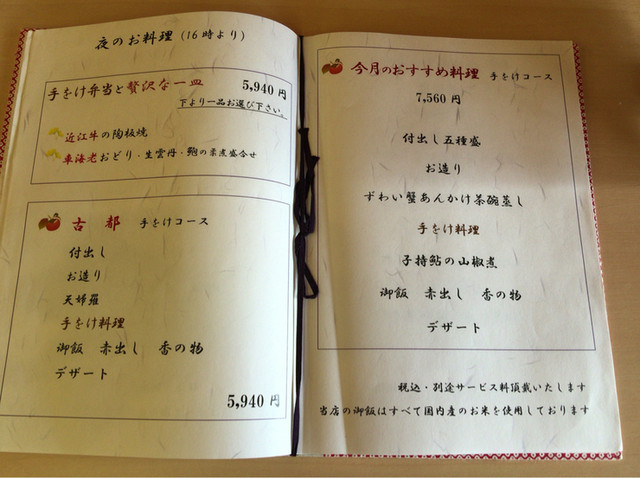 夜のお料理(16時より)
手をけ弁当と贅沢な一皿 5,940円
下より一品お選び下さい。
近江牛の陶板焼
車海老おどり・生雲丹・鮑の柔煮盛合せ
古都 手をけコース
付出し
お造り
天婦羅
手をけ料理
御飯 赤出し 香の物
デザート
5,940円
今月のおすすめ料理 手をけコース
7,560円
付出し五種盛
お造り
ずわい蟹あんかけ茶碗蒸し
手をけ料理
子持鮎の山椒煮
御飯 赤出し 香の物
デザート
税込・別途サービス料頂戴いたします
当店の御飯はすべて国内産のお米を使用しております